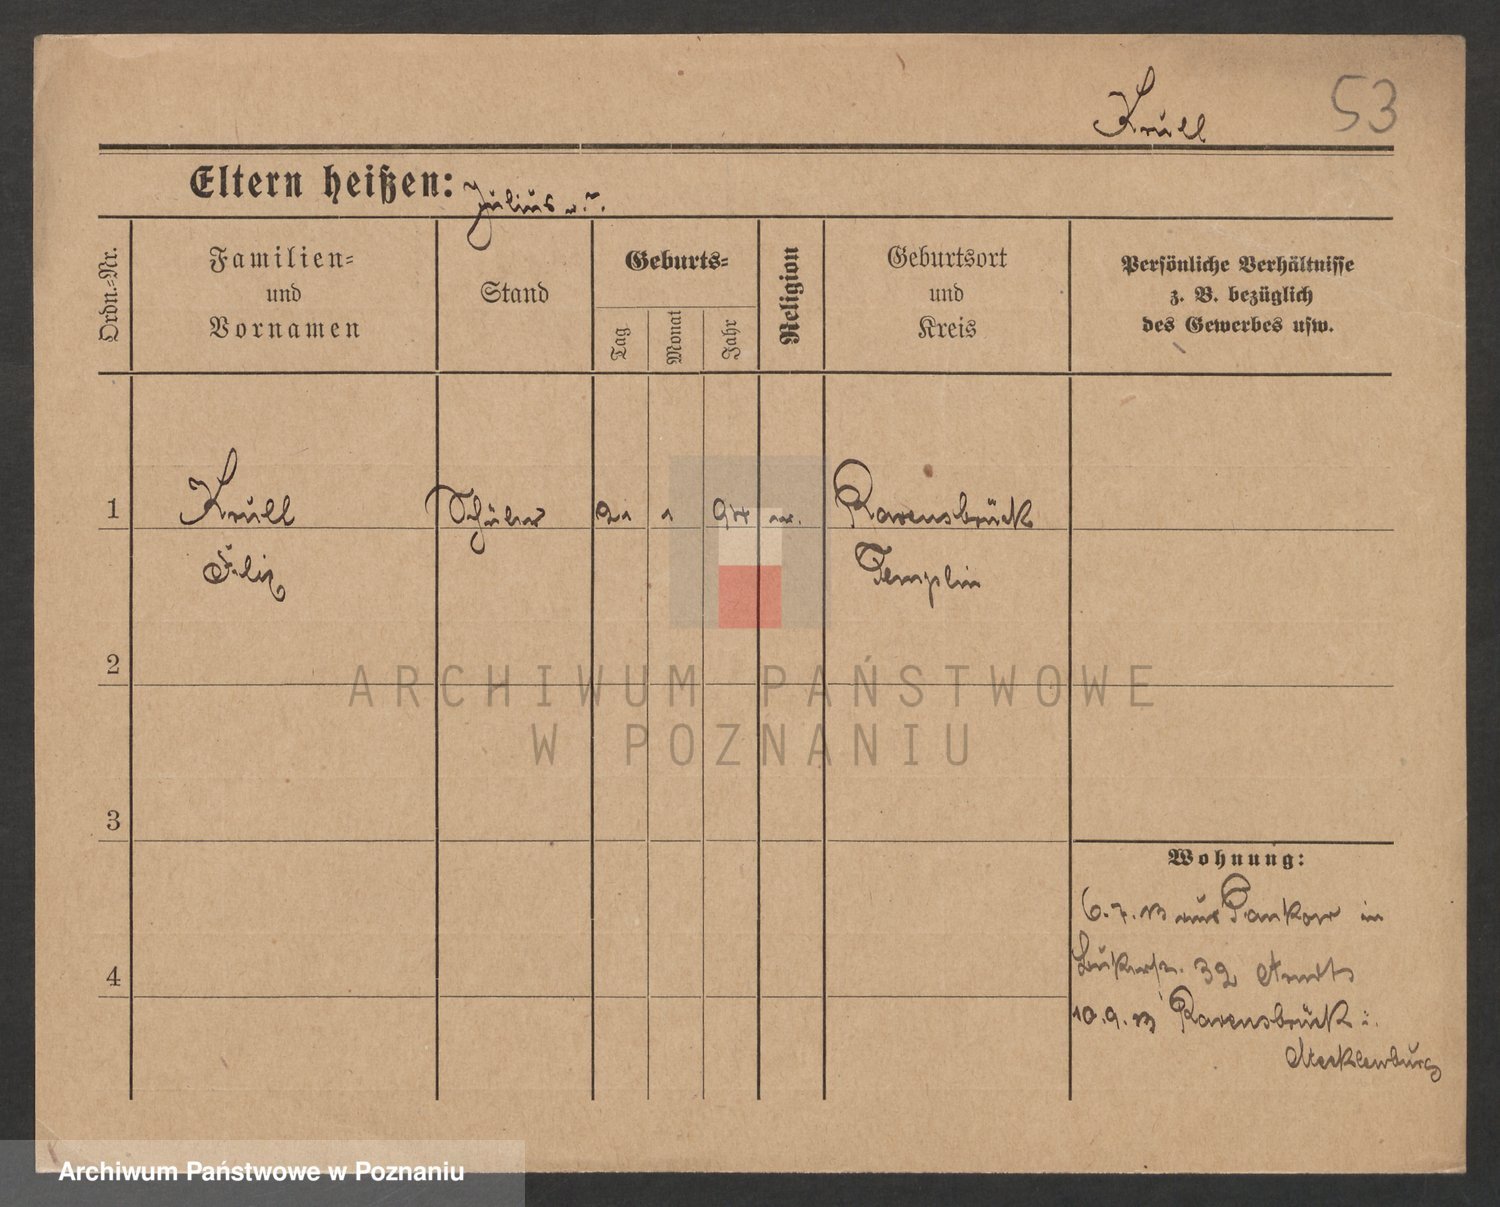 Krull 53
Eltern heißen: Julius u. ?.
Ordn.-Nr.
Familien-
und
Vornamen
Stand
Geburts-
Tag
Monat
Jahr
Religion
Geburtsort
und
Kreis
Persönliche Verhältnisse
z. B. bezüglich
des Gewerbes usw.
1 Krull Schüler 21 1 94 Ravensbrück
Felix Templin
2
3
4
Wohnung:
6.7.13 aus Pankow in
32 Arndt
10.9.13 Ravensbrück i.
Mecklenburg
ARCHIWUM PAŃSTWOWE
W POZNANIU
Archiwum Państwowe w Poznaniu